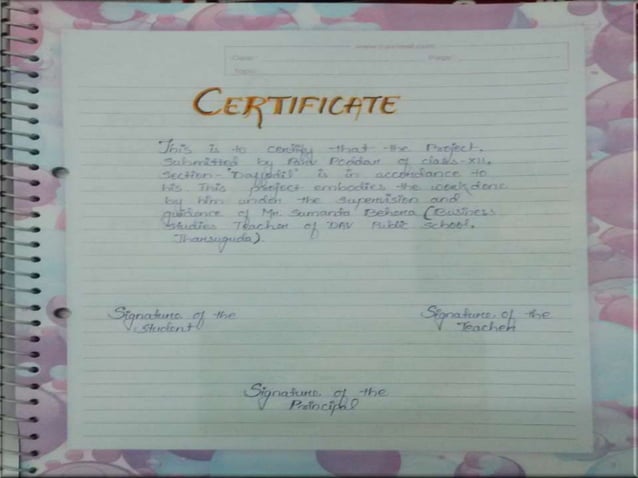 Date:
Page:
Topic:
CERTIFICATE
This is to certify that the Project,
Submitted by Poddar of class-XII,
Section- "Daffodil" is in accordance to
his. This project embodies the work done
by him under the supervision and
guidance of Mr. Sumanta Behera (Business
Studies Teacher of DAV Public School,
Jharsuguda).
Signature of the
Student
Signature of the
Teacher
Signature of the
Principal